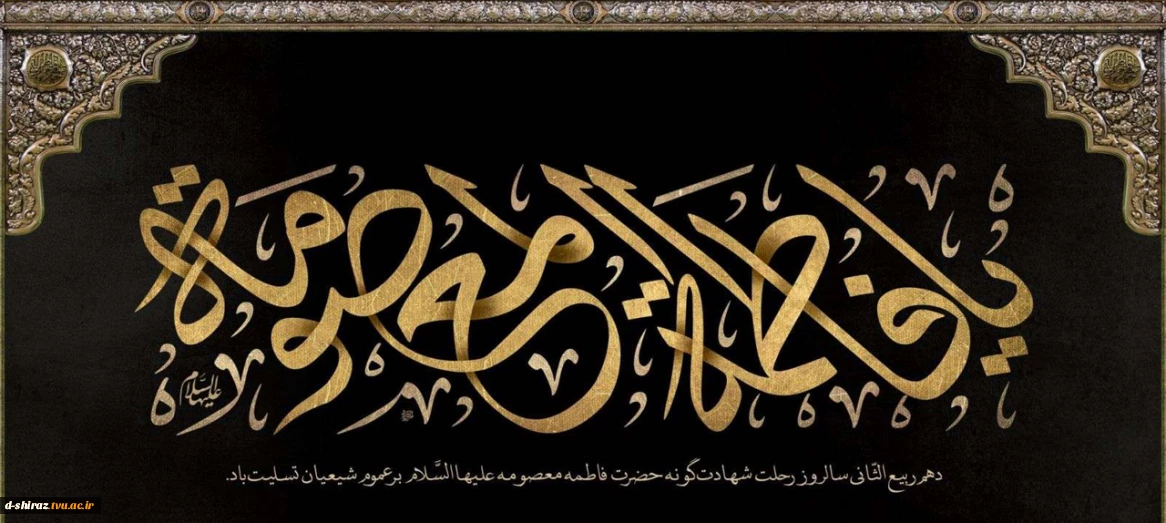 یا فاطمة المعصومة
علیهاالسَّلام
دهم ربیع الثّانی سالروز رحلت شهادت‌گونه حضرت فاطمه معصومه علیهاالسَّلام بر عموم شیعیان تسلیت باد.
d-shiraz.tvu.ac.ir